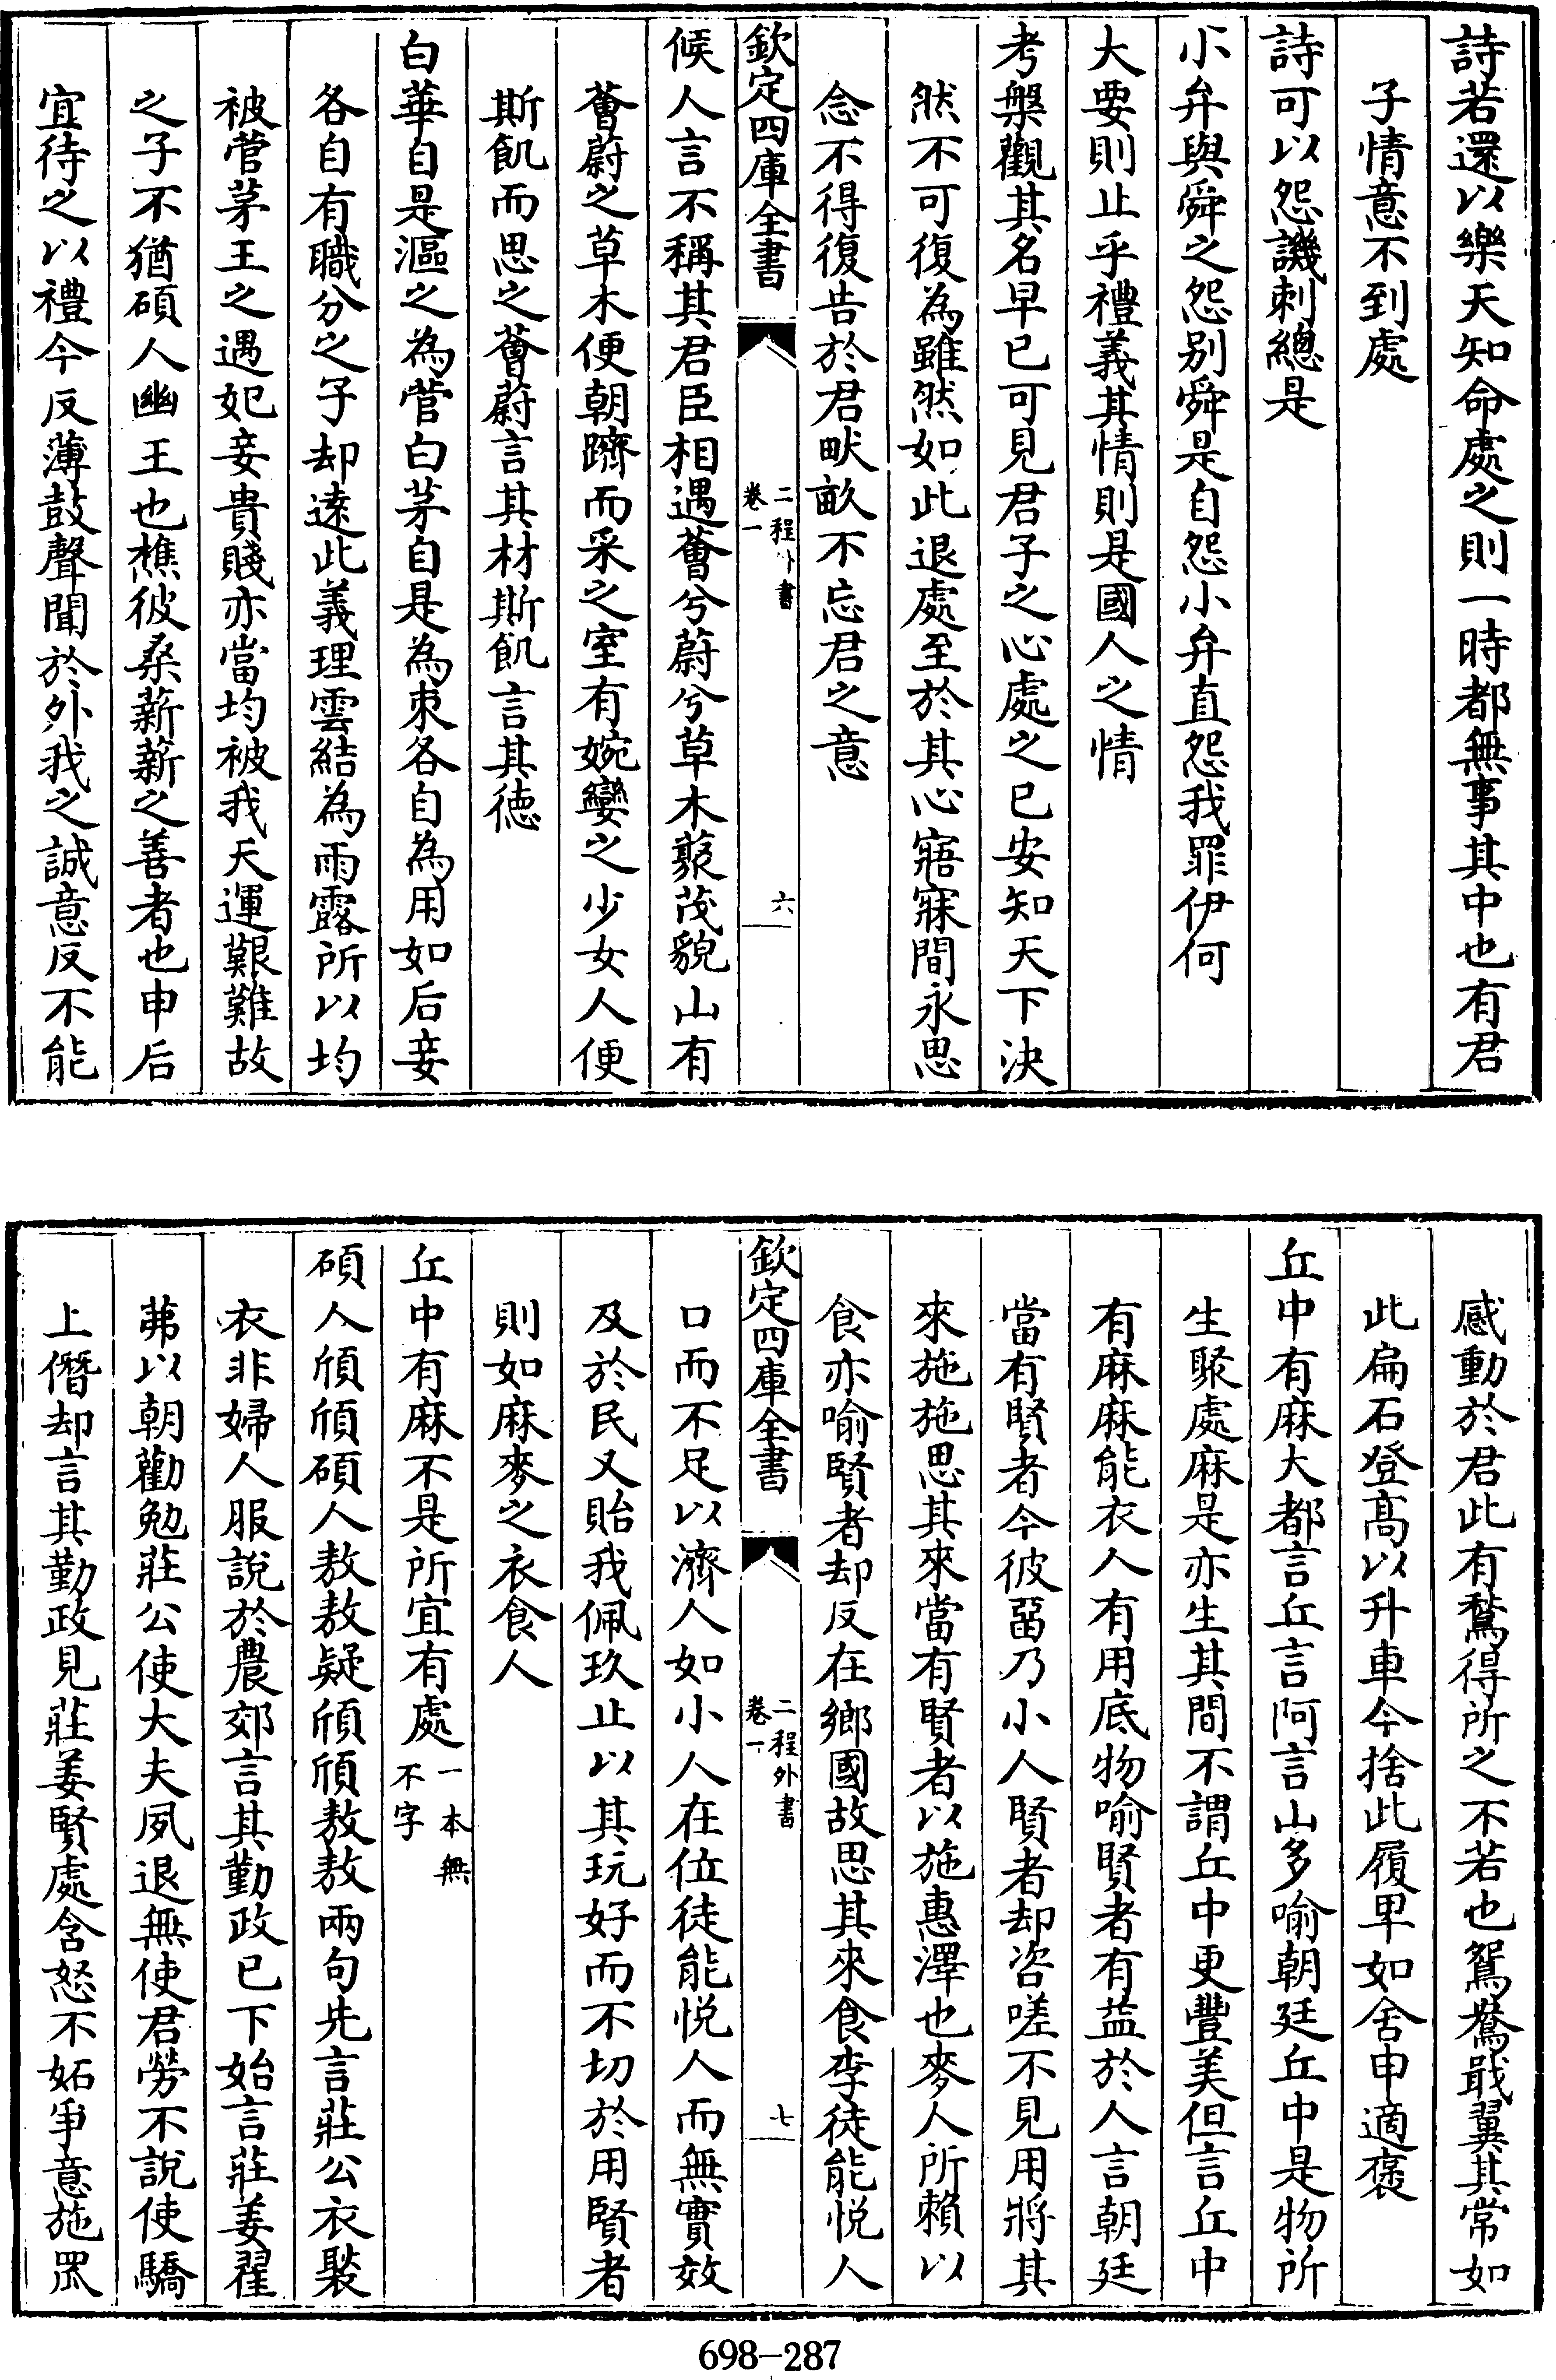 詩若還以樂天知命處之則一時都無事其中也有君
子情意不到處
詩可以怨譏刺總是
小弁與舜之怨别舜是自怨小弁直怨我罪伊何
大要則止乎禮義其情則是國人之情
考槃觀其名早已可見君子之心處之已安知天下決
然不可復為雖然如此退處至於其心寤寐間永思
念不得復告於君畎畝不忘君之意
欽定四庫全書
二程外書
卷一
六
候人言不稱其君臣相遇薈兮蔚兮草木蔡茂貌山有
薈蔚之草木便朝隮而采之室有婉孌之少女人便
斯飢而思之薈蔚言其材斯飢言其德
白華自是漚之為菅白茅自是為束各自為用如后妾
各自有職分之子却逺此義理雲結為雨露所以均
被菅茅王之遇妃妾貴賤亦當均被我天運艱難故
之子不猶碩人幽王也樵彼桑薪薪之善者也申后
宜待之以禮今反薄鼓聲聞於外我之誠意反不能
感動於君此有鶖得所之不若也鴛鴦戢翼其常如
此扁石登髙以升車今捨此履卑如舍申適褒
丘中有麻大都言丘言阿言山多喻朝廷丘中是物所
生聚處麻是亦生其間不謂丘中更豐美但言丘中
有麻麻能衣人有用底物喻賢者有益於人言朝廷
當有賢者今彼畱乃小人賢者却咨嗟不見用將其
來施施思其來當有賢者以施惠澤也麥人所賴以
食亦喻賢者却反在鄉國故思其來食李徒能悦人
欽定四庫全書
二程外書
卷一
七
口而不足以濟人如小人在位徒能悦人而無實效
及於民又貽我佩玖止以其玩好而不切於用賢者
則如麻麥之衣食人
丘中有麻不是所宜有處一本無不字
碩人頎頎碩人敖敖疑頎頎敖敖兩句先言莊公衣褧
衣非婦人服説於農郊言其勤政已下始言莊姜翟
茀以朝勸勉莊公使大夫夙退無使君勞不説使驕
上僭却言其勤政見莊姜賢處含怒不妬爭意施罛
698-287